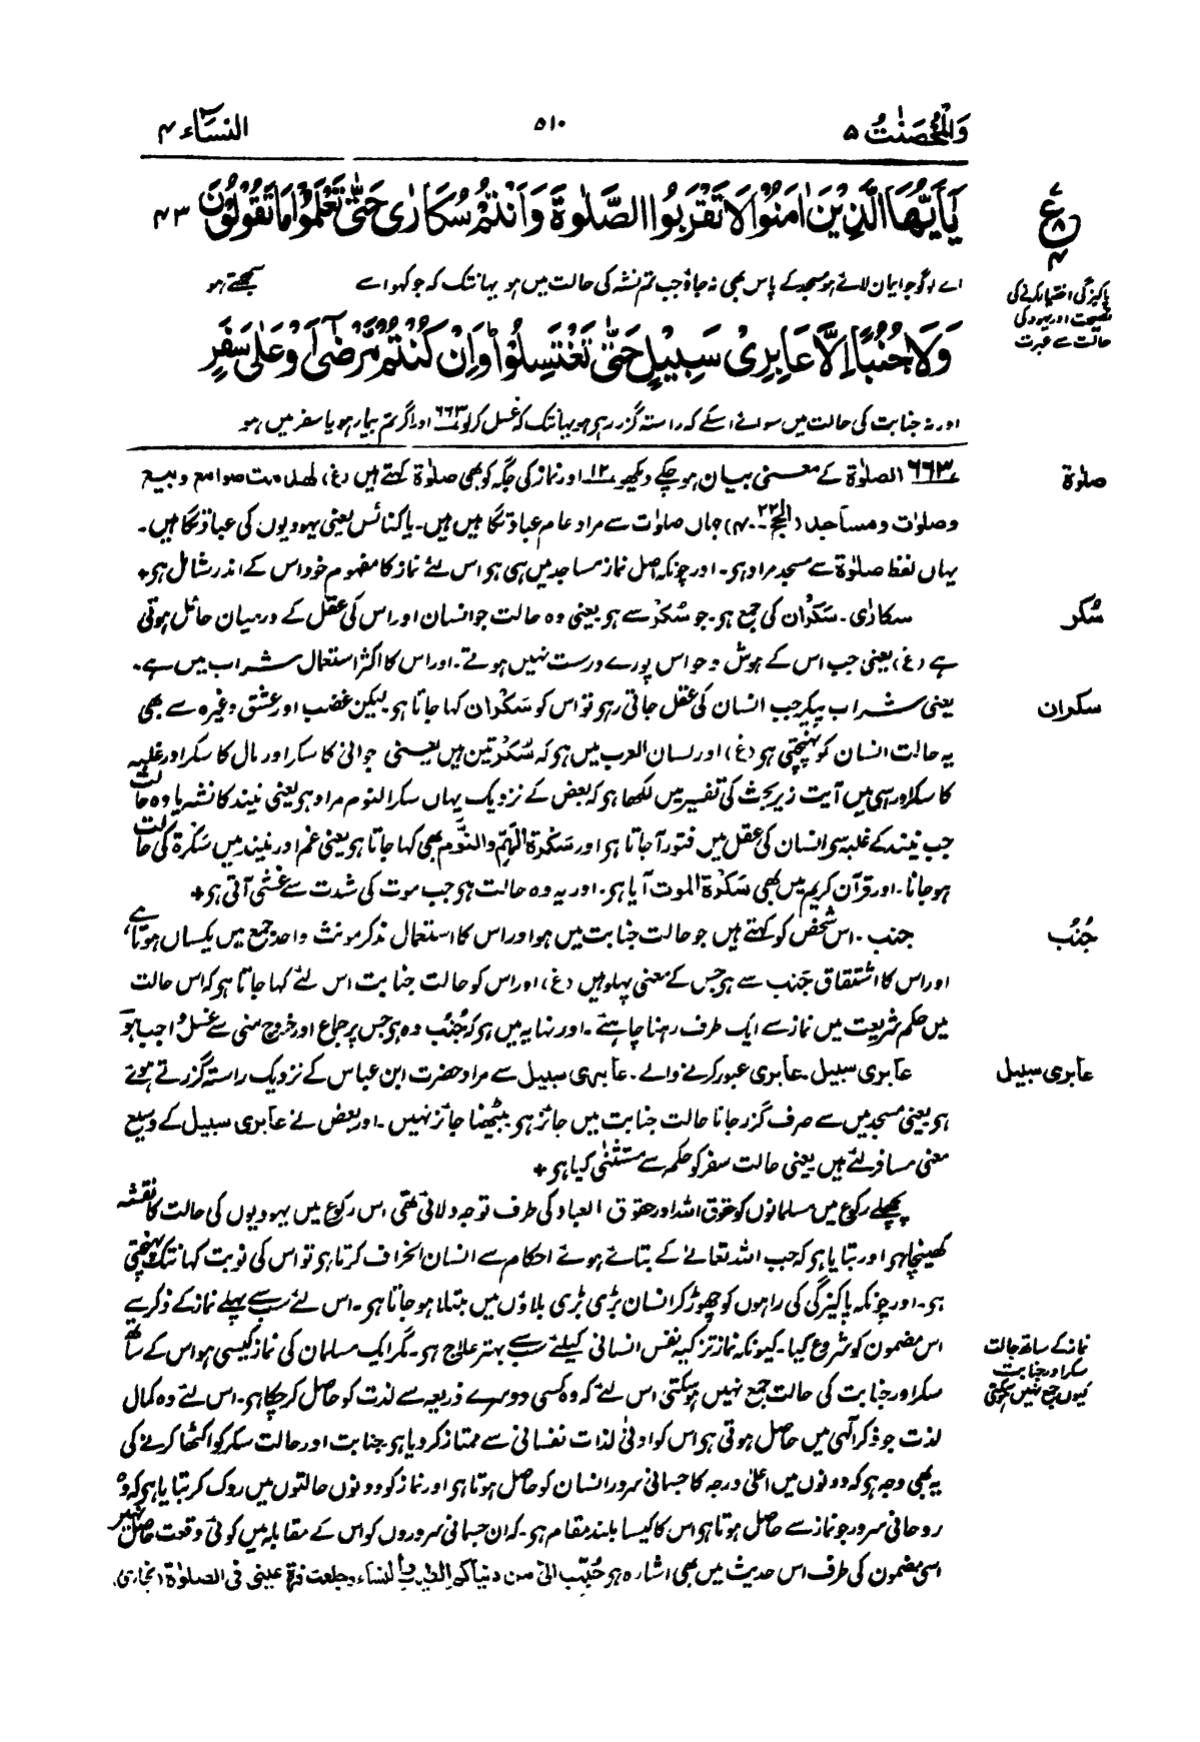 وَالْمُحْصَنٰتُ ۵
۵۱۰
النساء ۴
يٰۤاَيُّهَا الَّذِيْنَ اٰمَنُوْا لَا تَقْرَبُوا الصَّلٰوةَ وَاَنْتُمْ سُكَارٰى حَتّٰى تَعْلَمُوْا مَا تَقُوْلُوْنَ ۴۳
اے لوگو جو ایمان لائے ہو مسجد کے پاس بھی نہ جاؤ جب تم نشہ کی حالت میں ہو یہانتک کہ جو کہو اسے سمجھتے ہو
ع ۸ ۴
پاکیزگی اختیار کرنے کی
نصیحت اور یہود کی
حالت سے عبرت
وَلَا جُنُبًا اِلَّا عَابِرِيْ سَبِيْلٍ حَتّٰى تَغْتَسِلُوْا وَاِنْ كُنْتُمْ مَّرْضٰٓى اَوْ عَلٰى سَفَرٍ
اور نہ جنابت کی حالت میں سوائے اسکے کہ راستہ گزر رہے ہو یہانتک کہ غسل کر لو ۶۶۳ اور اگر تم بیمار ہو یا سفر میں ہو
صلوٰۃ
۶۶۳ الصلوٰۃ کے معنی بیان ہو چکے دیکھو ۱۲ اور نماز کی جگہ کو بھی صلوٰۃ کہتے ہیں (غ) لھدمت صوامع وبیع
وصلوٰت ومساجد (الحج ۲۲۔۴۰) جہاں صلوٰت سے مراد عام عبادتگاہیں ہیں۔ یا کنائس یعنی یہودیوں کی عبادتگاہیں۔
یہاں لفظ صلوٰۃ سے مسجد مراد ہو۔ اور چونکہ اصل نماز مساجد میں ہی ہو اس لئے نماز کا مفہوم خود اس کے اندر شامل ہو+
سُکر
سکارٰی۔ سَکْرَان کی جمع ہو۔ جو سُکْر سے ہو یعنی وہ حالت جو انسان اور اس کی عقل کے درمیان حائل ہوتی
ہے (غ) یعنی جب اس کے ہوش و حواس پورے درست نہیں ہوتے۔ اور اس کا اکثر استعمال شراب میں ہے۔
سکران
یعنی شراب پیکر جب انسان کی عقل جاتی رہو تو اس کو سَکْرَان کہا جاتا ہو لیکن غضب اور عشق وغیرہ سے بھی
یہ حالت انسان کو پہنچتی ہو (غ) اور لسان العرب میں ہو کہ سُکْر تین ہیں یعنی جوانی کا سکر اور مال کا سکر اور غلبہ
کا سکر اور یہیں آیت زیر بحث کی تفسیر میں لکھا ہو کہ بعض کے نزدیک یہاں سکر النوم مراد ہو یعنی نیند کا نشہ یا وہ حالت
جب نیند کے غلبہ سے انسان کی عقل میں فتور آ جاتا ہو اور سَکْرَۃ الہَمّ والنَّوم بھی کہا جاتا ہو یعنی غم اور نیند میں سَکْرَۃ کی حالت
ہو جانا۔ اور قرآن کریم میں بھی سَکْرَۃ الموت آیا ہو۔ اور یہ وہ حالت ہو جب موت کی شدت سے غشی آتی ہو+
جُنُب
جنب۔ اس شخص کو کہتے ہیں جو حالت جنابت میں ہو اور اس کا استعمال مذکر مونث واحد جمع میں یکساں ہوتا ہے،
اور اس کا اشتقاق جَنب سے ہو جس کے معنی پہلو ہیں (غ) اور اس کو حالت جنابت اس لئے کہا جاتا ہو کہ اس حالت
میں حکم شریعت میں نماز سے ایک طرف رہنا چاہئے۔ اور نہایہ میں ہو کہ جُنُب وہ ہو جس پر جماع اور خروج منی سے غسل واجب ہو
عابری سبیل
عابری سبیل۔ عابری عبور کرنے والے۔ عابری سبیل سے مراد حضرت ابن عباس کے نزدیک راستہ گزرتے ہوئے
ہو یعنی مسجد میں سے صرف گزر جانا حالت جنابت میں جائز ہو بیٹھنا جائز نہیں۔ اور بعض نے عابری سبیل کے وسیع
معنی مسافر لئے ہیں یعنی حالت سفر کو حکم سے مستثنٰی کیا ہو+
پچھلے رکوع میں مسلمانوں کو حقوق اللہ اور حقوق العباد کی طرف توجہ دلائی تھی اس رکوع میں یہودیوں کی حالت کا نقشہ
کھینچا ہو اور بتایا ہو کہ جب اللہ تعالےٰ کے بتائے ہوئے احکام سے انسان انحراف کرتا ہو تو اس کی نوبت کہانتک پہنچتی
ہو۔ اور چونکہ پاکیزگی کی راہوں کو چھوڑ کر انسان بڑی بڑی بلاؤں میں مبتلا ہو جاتا ہو۔ اس لئے سب سے پہلے نماز کے ذکر سے
نماز کے ساتھ حالت
سکر اور جنابت
کیوں جمع نہیں ہو سکتی
اس مضمون کو شروع کیا۔ کیونکہ نماز تزکیہ نفس انسانی کیلئے سب بہتر علاج ہو۔ مگر ایک مسلمان کی نماز کیسی ہو اس کے ساتھ
سکر اور جنابت کی حالت جمع نہیں ہو سکتی اس لئے کہ وہ کسی دوسرے ذریعہ سے لذت کو حاصل کر چکا ہو۔ اس لئے وہ کمال
لذت جو ذکر الٰہی میں حاصل ہوتی ہو اس کو ادنیٰ لذات نفسانی سے ممتاز کر دیا ہو جنابت اور حالت سکر کو اکٹھا کرنے کی
یہ بھی وجہ ہو کہ دونوں میں اعلیٰ درجہ کا جسمانی سرور انسان کو حاصل ہوتا ہو اور نماز کو دونوں حالتوں میں روک کر بتایا ہو کہ وہ
روحانی سرور جو نماز سے حاصل ہوتا ہو اس کا کیسا بلند مقام ہو۔ کہ ان جسمانی سروروں کو اس کے مقابلہ میں کوئی وقعت حاصل نہیں
اسی مضمون کی طرف اس حدیث میں بھی اشارہ ہو حُبِّبَ الیّ من دنیاکم الطیب والنساء وجعلت قرۃ عینی فی الصلوٰۃ (بخاری)